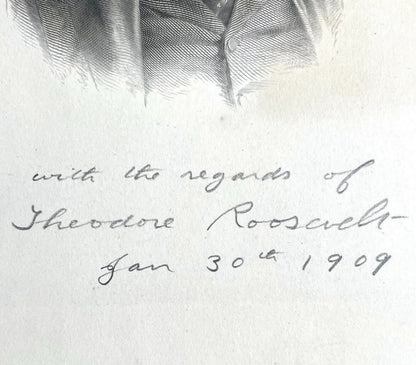 with the regards of
Theodore Roosevelt
Jan 30th 1909